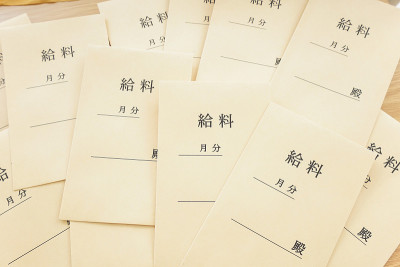 給料
給料
月分
給料
月分
殿
給料
月分
給料
月分
殿
給料
月分
給料
月分
殿
給料
月分
月分
殿